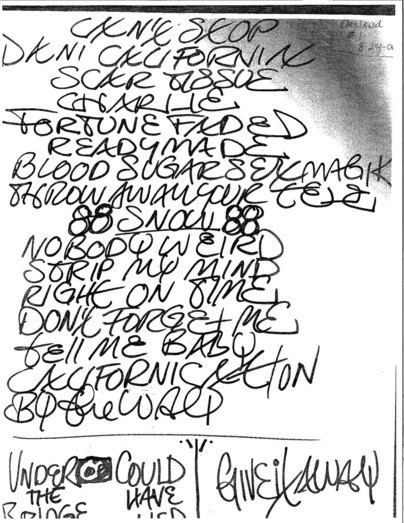 CAN'T STOP
DANI CALIFORNIA
SCAR TISSUE
CHARLIE
FORTUNE FADED
READYMADE
BLOOD SUGAR SEX MAGIK
THROW AWAY YOUR TELE
88 SNOW 88
NOBODY WEIRD
STRIP MY MIND
RIGHT ON TIME
DON'T FORGET ME
TELL ME BABY
CALIFORNICATION
BY the WAY
UNDER OR COULD
THE HAVE
BRIDGE LIED
GIVE IT AWAY